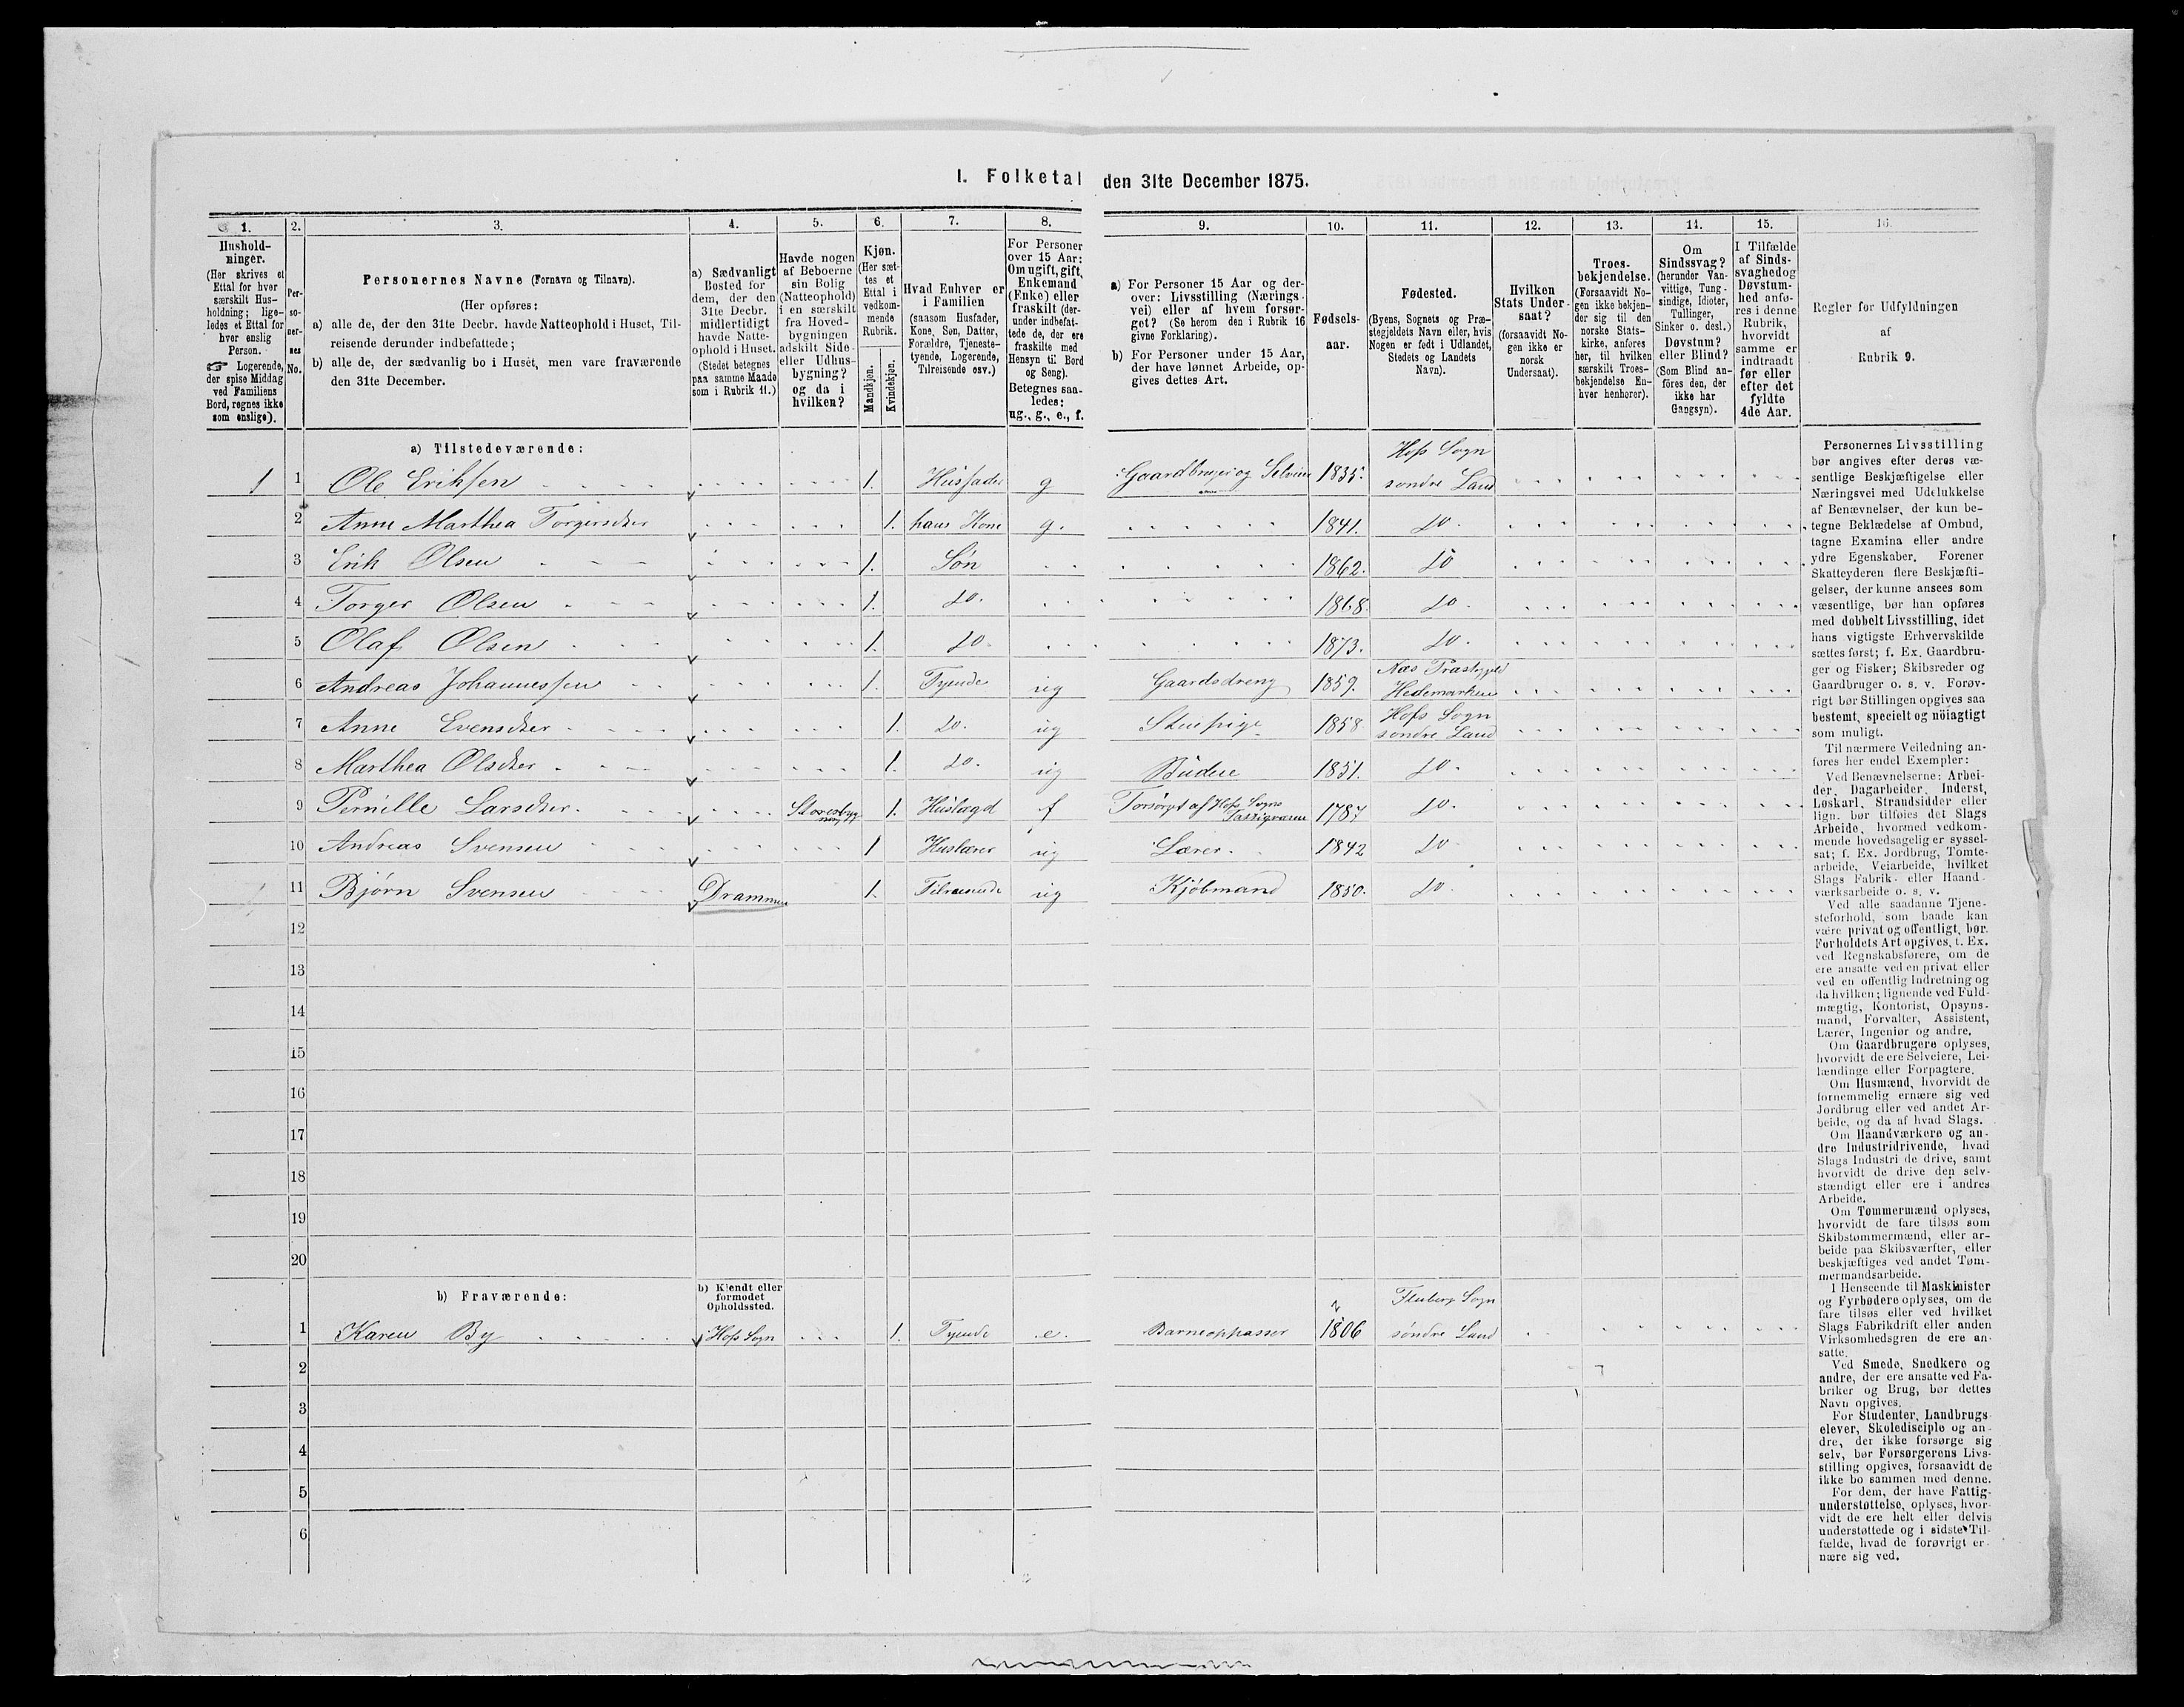 I. Folketal den 31te December 1875.
1. 2. 3. 4. 5. 6. 7. 8. 9. 10. 11. 12. 13. 14. 15. 16.
Hushold-
ninger.
(Her skrives et
Ettal for hver
særskilt Hus-
holdning; lige-
ledes et Ettal for
hver enslig
Person.
☞ Logerende,
der spise Middag
ved Familiens
Bord, regnes ikke
som enslige).
Per-
so-
ner-
nes
No.
Personernes Navne (Fornavn og Tilnavn).
(Her opføres:
a) alle de, der den 31te Decbr. havde Natteophold i Huset, Til-
reisende derunder indbefattede;
b) alle de, der sædvanlig bo i Huset, men vare fraværende
den 31te December.
a) Sædvanligt
Bosted for
dem, der den
31te Decbr.
midlertidigt
havde Natte-
ophold i Huset.
(Stedet betegnes
paa samme Maade
som i Rubrik 11.)
Havde nogen
af Beboerne
sin Bolig
(Natteophold)
i en særskilt
fra Hoved-
bygningen
adskilt Side-
eller Udhus-
bygning?
og da i
hvilken?
Kjøn.
(Her sæt-
tes et
Ettal i
vedkom-
mende
Rubrik.
Mandkjøn.
Kvindekjøn.
Hvad Enhver er
i Familien
(saasom Husfader,
Kone, Søn, Datter,
Forældre, Tjeneste-
tyende, Logerende,
Tilreisende osv.)
For Personer
over 15 Aar:
Om ugift, gift,
Enkemand
(Enke) eller
fraskilt (der-
under indbefat-
tede de, der ere
fraskilte med
Hensyn til Bord
og Seng).
Betegnes saa-
ledes:
ug., g., e., f.
a) For Personer 15 Aar og der-
over: Livsstilling (Nærings-
vei) eller af hvem forsør-
get? (Se herom den i Rubrik 16
givne Forklaring).
b) For Personer under 15 Aar,
der have lønnet Arbeide, op-
gives dettes Art.
Fødsels-
aar.
Fødested.
(Byens, Sognets og Præ-
stegjeldets Navn eller, hvis
Nogen er født i Udlandet,
Stedets og Landets
Navn).
Hvilken
Stats Under-
saat?
(forsaavidt No-
gen ikke er
norsk
Undersaat).
Troes-
bekjendelse.
(Forsaavidt No-
gen ikke bekjen-
der sig til den
norske Stats-
kirke, anføres
her, til hvilken
særskilt Troes-
bekjendelse En-
hver henhører).
Om
Sindssvag?
(herunder Van-
vittige, Tung-
sindige, Idioter,
Tullinger,
Sinker o. desl.)
Døvstum?
eller Blind?
(Som Blind an-
føres den, der
ikke har
Gangsyn).
I Tilfælde
af Sinds-
svaghed og
Døvstum-
hed anfø-
res i denne
Rubrik,
hvorvidt
samme er
indtraadt
før eller
efter det
fyldte
4de Aar.
Regler for Udfyldningen
af
Rubrik 9.
a) Tilstedeværende:
Hofs Sogn
1 1 Ole Eriksen 1. Husfader g Gaardbruger og Selveier 1835. søndre Land
2 Anne Marthea Torgersdter 1. hans Kone g. 1841. do.
3 Erik Olsen 1. Søn 1862. do
4 Torger Olsen 1. do. 1868. do.
5 Olaf Olsen 1. do. 1873. do.
6 Andreas Johannessen 1. Tyende ug Gaardsdreng 1859. Næs Præstegjeld Hedemarken
7 Anne Evensdter 1. do. ug Stuepige 1858 Hofs Sogn søndre Land
8 Marthea Olsdter 1. do. ug Budeie 1851. do.
9 Pernille Larsdter. 1. Huslægd f Forsørgt af Hofs Sogns Fattigvæsen 1787 do.
10 Andreas Svensen 1 Huslærer ug Lærer. 1842 do
11 Bjørn Svensen Drammen 1. Tilreisende ug Kjøbmand 1850. do.
12
13
14
15
16
17
18
19
20
b) Fraværende:
b) Kjendt eller
formodet
Opholdssted.
Fluberg Sogn
1 Karen By Hofs Sogn 1. Tyende e. Barnepasser 1806 søndre Land
2
3
4
5
6
Personernes Livsstilling
bør angives efter deres væ-
sentlige Beskjæftigelse eller
Næringsvei med Udelukkelse
af Benævnelser, der kun be-
tegne Beklædelse af Ombud,
tagne Examina eller andre
ydre Egenskaber. Forener
Skatteyderen flere Beskjæfti-
gelser, der kunne ansees som
væsentlige, bør han opføres
med dobbelt Livsstilling, idet
hans vigtigste Erhvervskilde
sættes først; f. Ex. Gaardbru-
ger og Fisker; Skibsreder og
Gaardbruger o. s. v. Forøv-
rigt bør Stillingen opgives saa
bestemt, specielt og nöiagtigt
som muligt.
Til nærmere Veiledning an-
føres her endel Exempler:
Ved Benævnelserne: Arbei-
der, Dagarbeider, Inderst,
Løskarl, Strandsidder eller
lign. bør tilføies det Slags
Arbeide, hvormed vedkom-
mende hovedsagelig er syssel-
sat; f. Ex. Jordbrug, Tomte-
arbeide, Veiarbeide, hvilket
Slags Fabrik- eller Haand-
værksarbeide o. s. v.
Ved alle saadanne Tjene-
steforhold, som baade kan
være privat og offentligt, bør
Forholdets Art opgives, t. Ex.
ved Regnskabsførere, om de
ere ansatte ved en privat eller
ved en offentlig Indretning og
da hvilken; lignende ved Fuld-
mægtig, Kontorist, Opsyns-
mand, Forvalter, Assistent,
Lærer, Ingeniør og andre.
Om Gaardbrugere oplyses,
hvorvidt de ere Selveiere, Lei-
lændinge eller Forpagtere.
Om Husmænd, hvorvidt de
fornemmelig ernære sig ved
Jordbrug eller ved andet Ar-
beide, og da af hvad Slags.
Om Haandværkere og an-
dre Industridrivende, hvad
Slags Industri de drive, samt
hvorvidt de drive den selv-
stændigt eller ere i andres
Arbeide.
Om Tømmermænd oplyses,
hvorvidt de fare tilsøs som
Skibstømmermænd, eller ar-
beide paa Skibsværfter, eller
beskjæftiges ved andet Tøm-
mermandsarbeide.
I Henseende til Maskinister
og Fyrbødere oplyses, om de
fare tilsøs eller ved hvilket
Slags Fabrikdrift eller anden
Virksomhedsgren de ere an-
satte.
Ved Smede, Snedkere og
andre, der ere ansatte ved Fa-
briker og Brug, bør dettes
Navn opgives.
For Studenter, Landbrugs-
elever, Skoledisciple og an-
dre, der ikke forsørge sig
selv, bør Forsørgerens Livs-
stilling opgives, forsaavidt de
ikke bo sammen med denne.
For dem, der have Fattig-
understøttelse, oplyses, hvor-
vidt de ere helt eller delvis
understøttede og i sidste Til-
fælde, hvad de forøvrigt er-
nære sig ved.